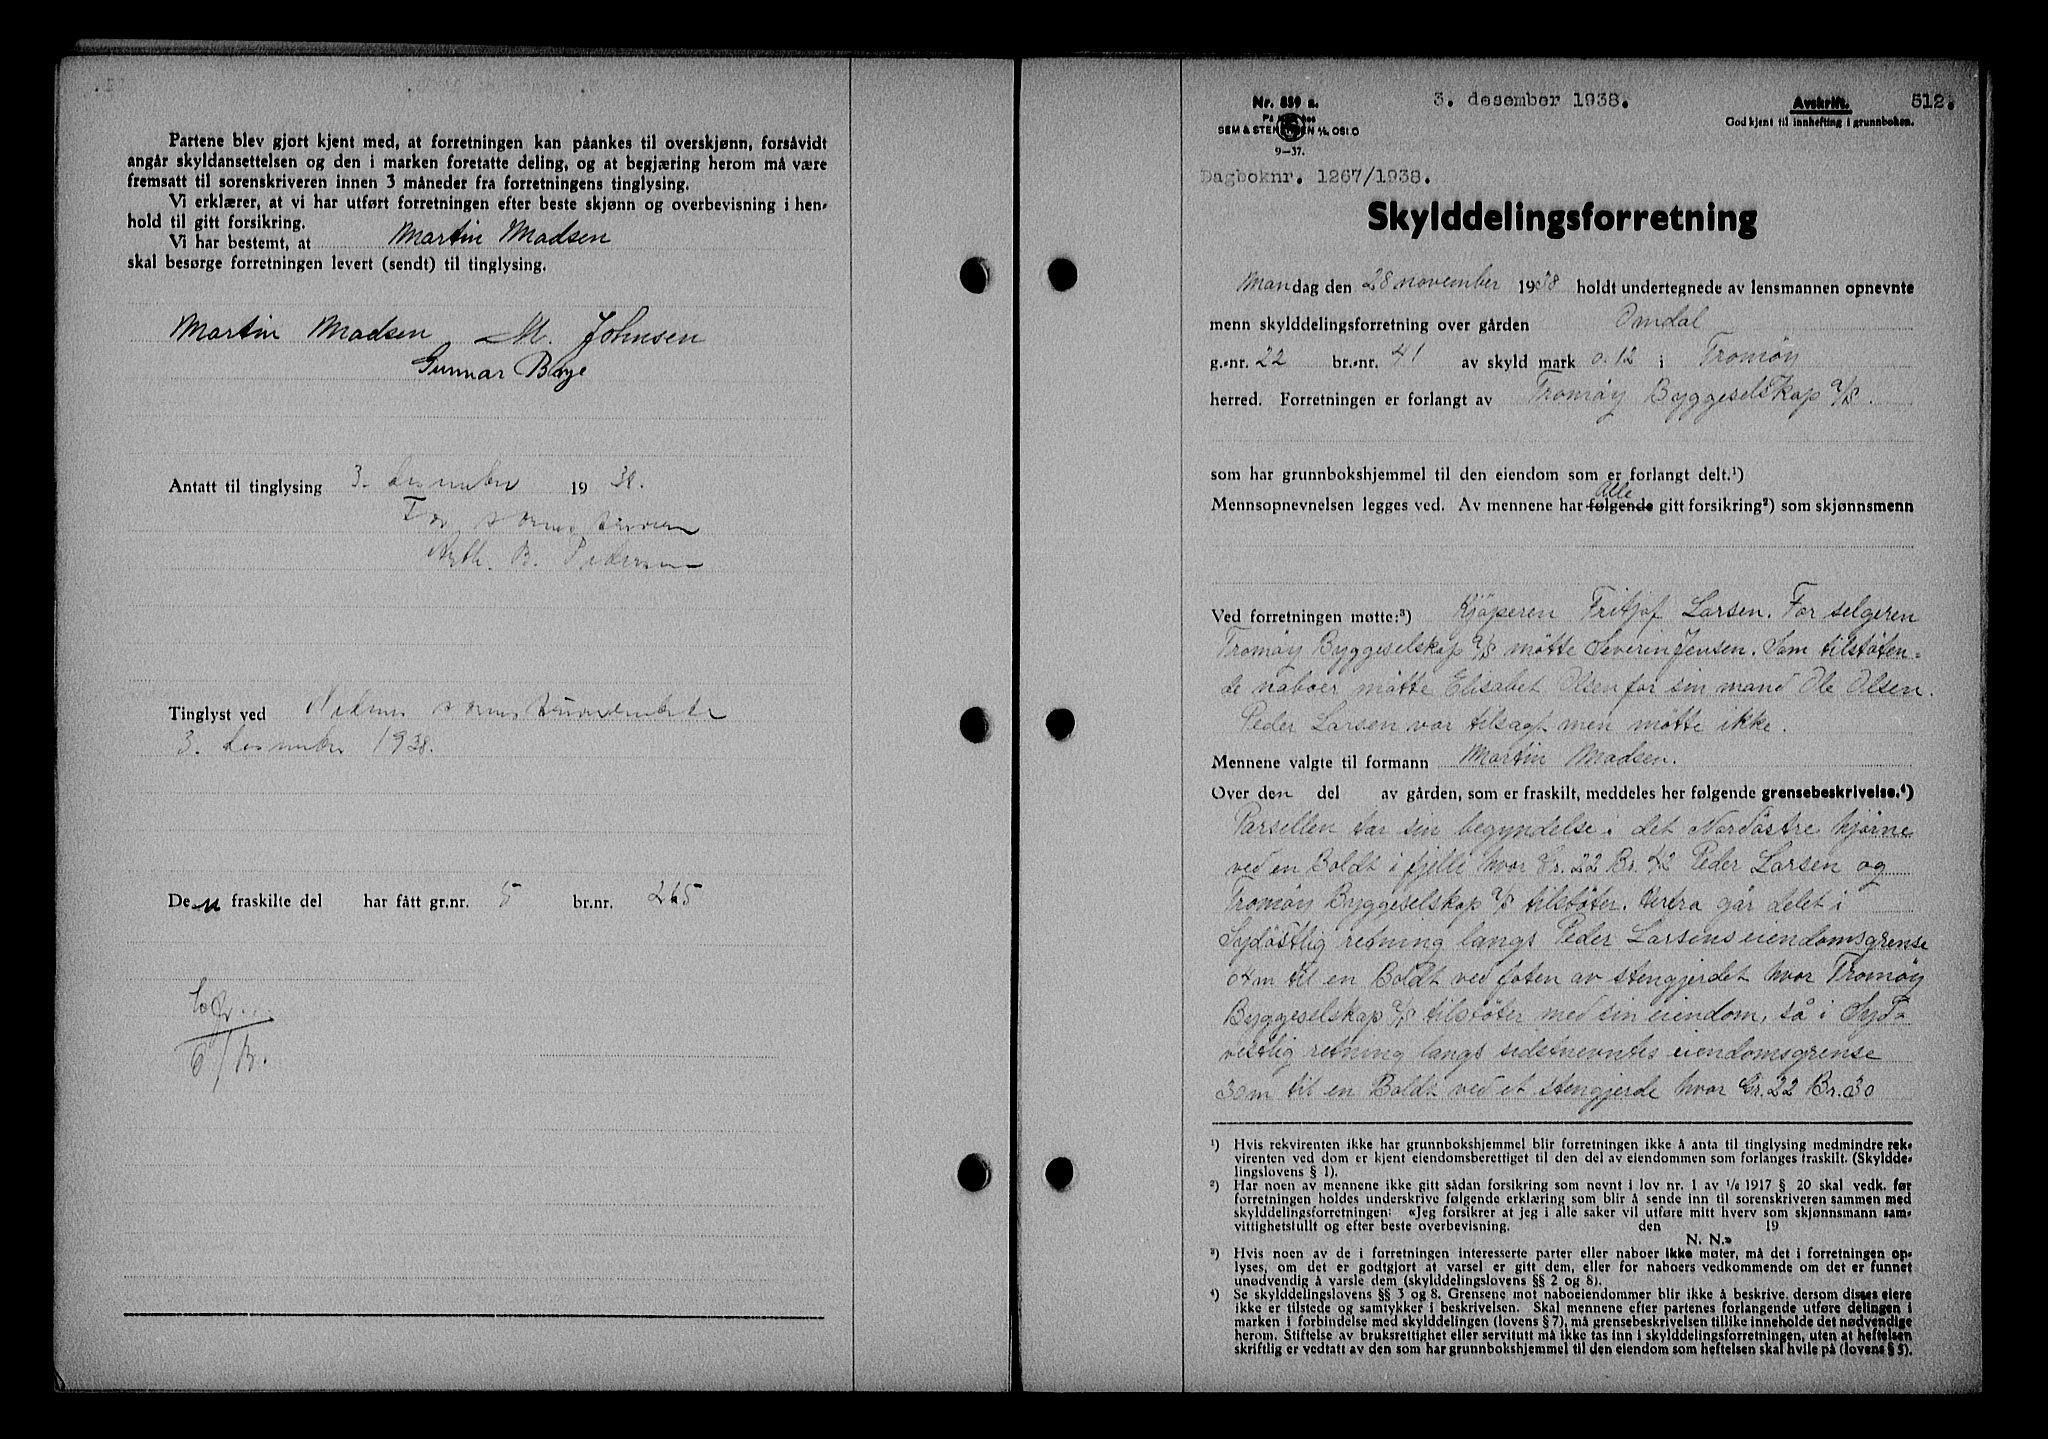 Partene blev gjort kjent med, at forretningen kan påankes til overskjønn, forsåvidt
angår skyldansettelsen og den i marken foretatte deling, og at begjæring herom må være
fremsatt til sorenskriveren innen 3 måneder fra forretningens tinglysing.
Vi erklærer, at vi har utført forretningen efter beste skjønn og overbevisning i hen-
hold til gitt forsikring.
Vi har bestemt, at Martin Madsen
skal besørge forretningen levert (sendt) til tinglysing.
Martin Madsen M. Johnsen
Gunnar Boye
Antatt til tinglysing 3. desember 1938.
For sorenskriveren
Arth. B. Pedersen
Tinglyst ved Nedenes sorenskriverembete
3. desember 1938.
Den fraskilte del har fått gr.nr. 5 br.nr. 265
Nr. 859 a.
SEM & STENERSEN A/S, OSLO
9—37.
3. desember 1938.
Avskrift.
512.
God kjent til innhefting i grunnboken.
Dagboknr. 1267/1938.
Skylddelingsforretning
Mandag den 28 november 1938 holdt undertegnede av lensmannen opnevnte
menn skylddelingsforretning over gården Omdal
g.-nr. 22 br.-nr. 41 av skyld mark 0.12 i Tromøy
herred. Forretningen er forlangt av Tromøy Byggeselskap a/s.
som har grunnbokshjemmel til den eiendom som er forlangt delt.¹)
Alle
Mennsopnevnelsen legges ved. Av mennene har følgende gitt forsikring²) som skjønnsmenn
Ved forretningen møtte:³) Kjöperen Fritjof Larsen. For selgeren
Tromøy Byggeselskap a/s mötte Severin Jensen. Som tilstöten-
de naboer mötte Elisabet Olsen for sin mand Ole Olsen.
Peder Larsen var tilsagt men mötte ikke.
Mennene valgte til formann Martin Madsen.
Over den del av gården, som er fraskilt, meddeles her følgende grensebeskrivelse.⁴)
Parsellen tar sin begyndelse i det Nordöstre hjörne
ved en Boldt i fjell hvor Gr. 22 Br. 42 Peder Larsen og
Tromøy Byggeselskap a/s tilstöter. Derfra går delet i
Sydöstlig retning langs Peder Larsens eiendomsgrense
m til en Boldt ved foten av stengjerdet hvor Tromøy
Byggeselskap a/s tilstöter med sin eiendom, så i Syd-
vestlig retning langs sidstnevntes eiendomsgrense
30 m til en Boldt ved et stengjerde hvor Gr. 22 Br. 30
¹) Hvis rekvirenten ikke har grunnbokshjemmel blir forretningen ikke å anta til tinglysing medmindre rek-
virenten ved dom er kjent eiendomsberettiget til den del av eiendommen som forlanges fraskilt. (Skyldde-
lingslovens § 1).
²) Har noen av mennene ikke gitt sådan forsikring som nevnt i lov nr. 1 av 1/6 1917 § 20 skal vedk. før
forretningen holdes underskrive følgende erklæring som blir å sende inn til sorenskriveren sammen med
skylddelingsforretningen: «Jeg forsikrer at jeg i alle saker vil utføre mitt hverv som skjønnsmann sam-
vittighetsfullt og efter beste overbevisning. den 19
N. N.»
³) Hvis noen av de i forretningen interesserte parter eller naboer ikke møter, må det i forretningen op-
lyses, om det er godtgjort at varsel er gitt dem, eller for naboers vedkommende om det er funnet
unødvendig å varsle dem (skylddelingslovens §§ 2 og 8).
⁴) Se skylddelingslovens §§ 3 og 8. Grensene mot naboeiendommer blir ikke å beskrive, dersom disses eiere
ikke er tilstede og samtykker i beskrivelsen. Skal mennene efter partenes forlangende utføre delingen i
marken i forbindelse med skylddelingen (lovens § 7), må grensebeskrivelsen tillike inneholde det nødvendige
herom. Stiftelse av bruksrettighet eller servitutt må ikke tas inn i skylddelingsforretningen, uten at heftelsen
skriftlig er vedtatt av den som har grunnbokshjemmel til den eiendom som heftelsen skal hvile på (lovens § 5).